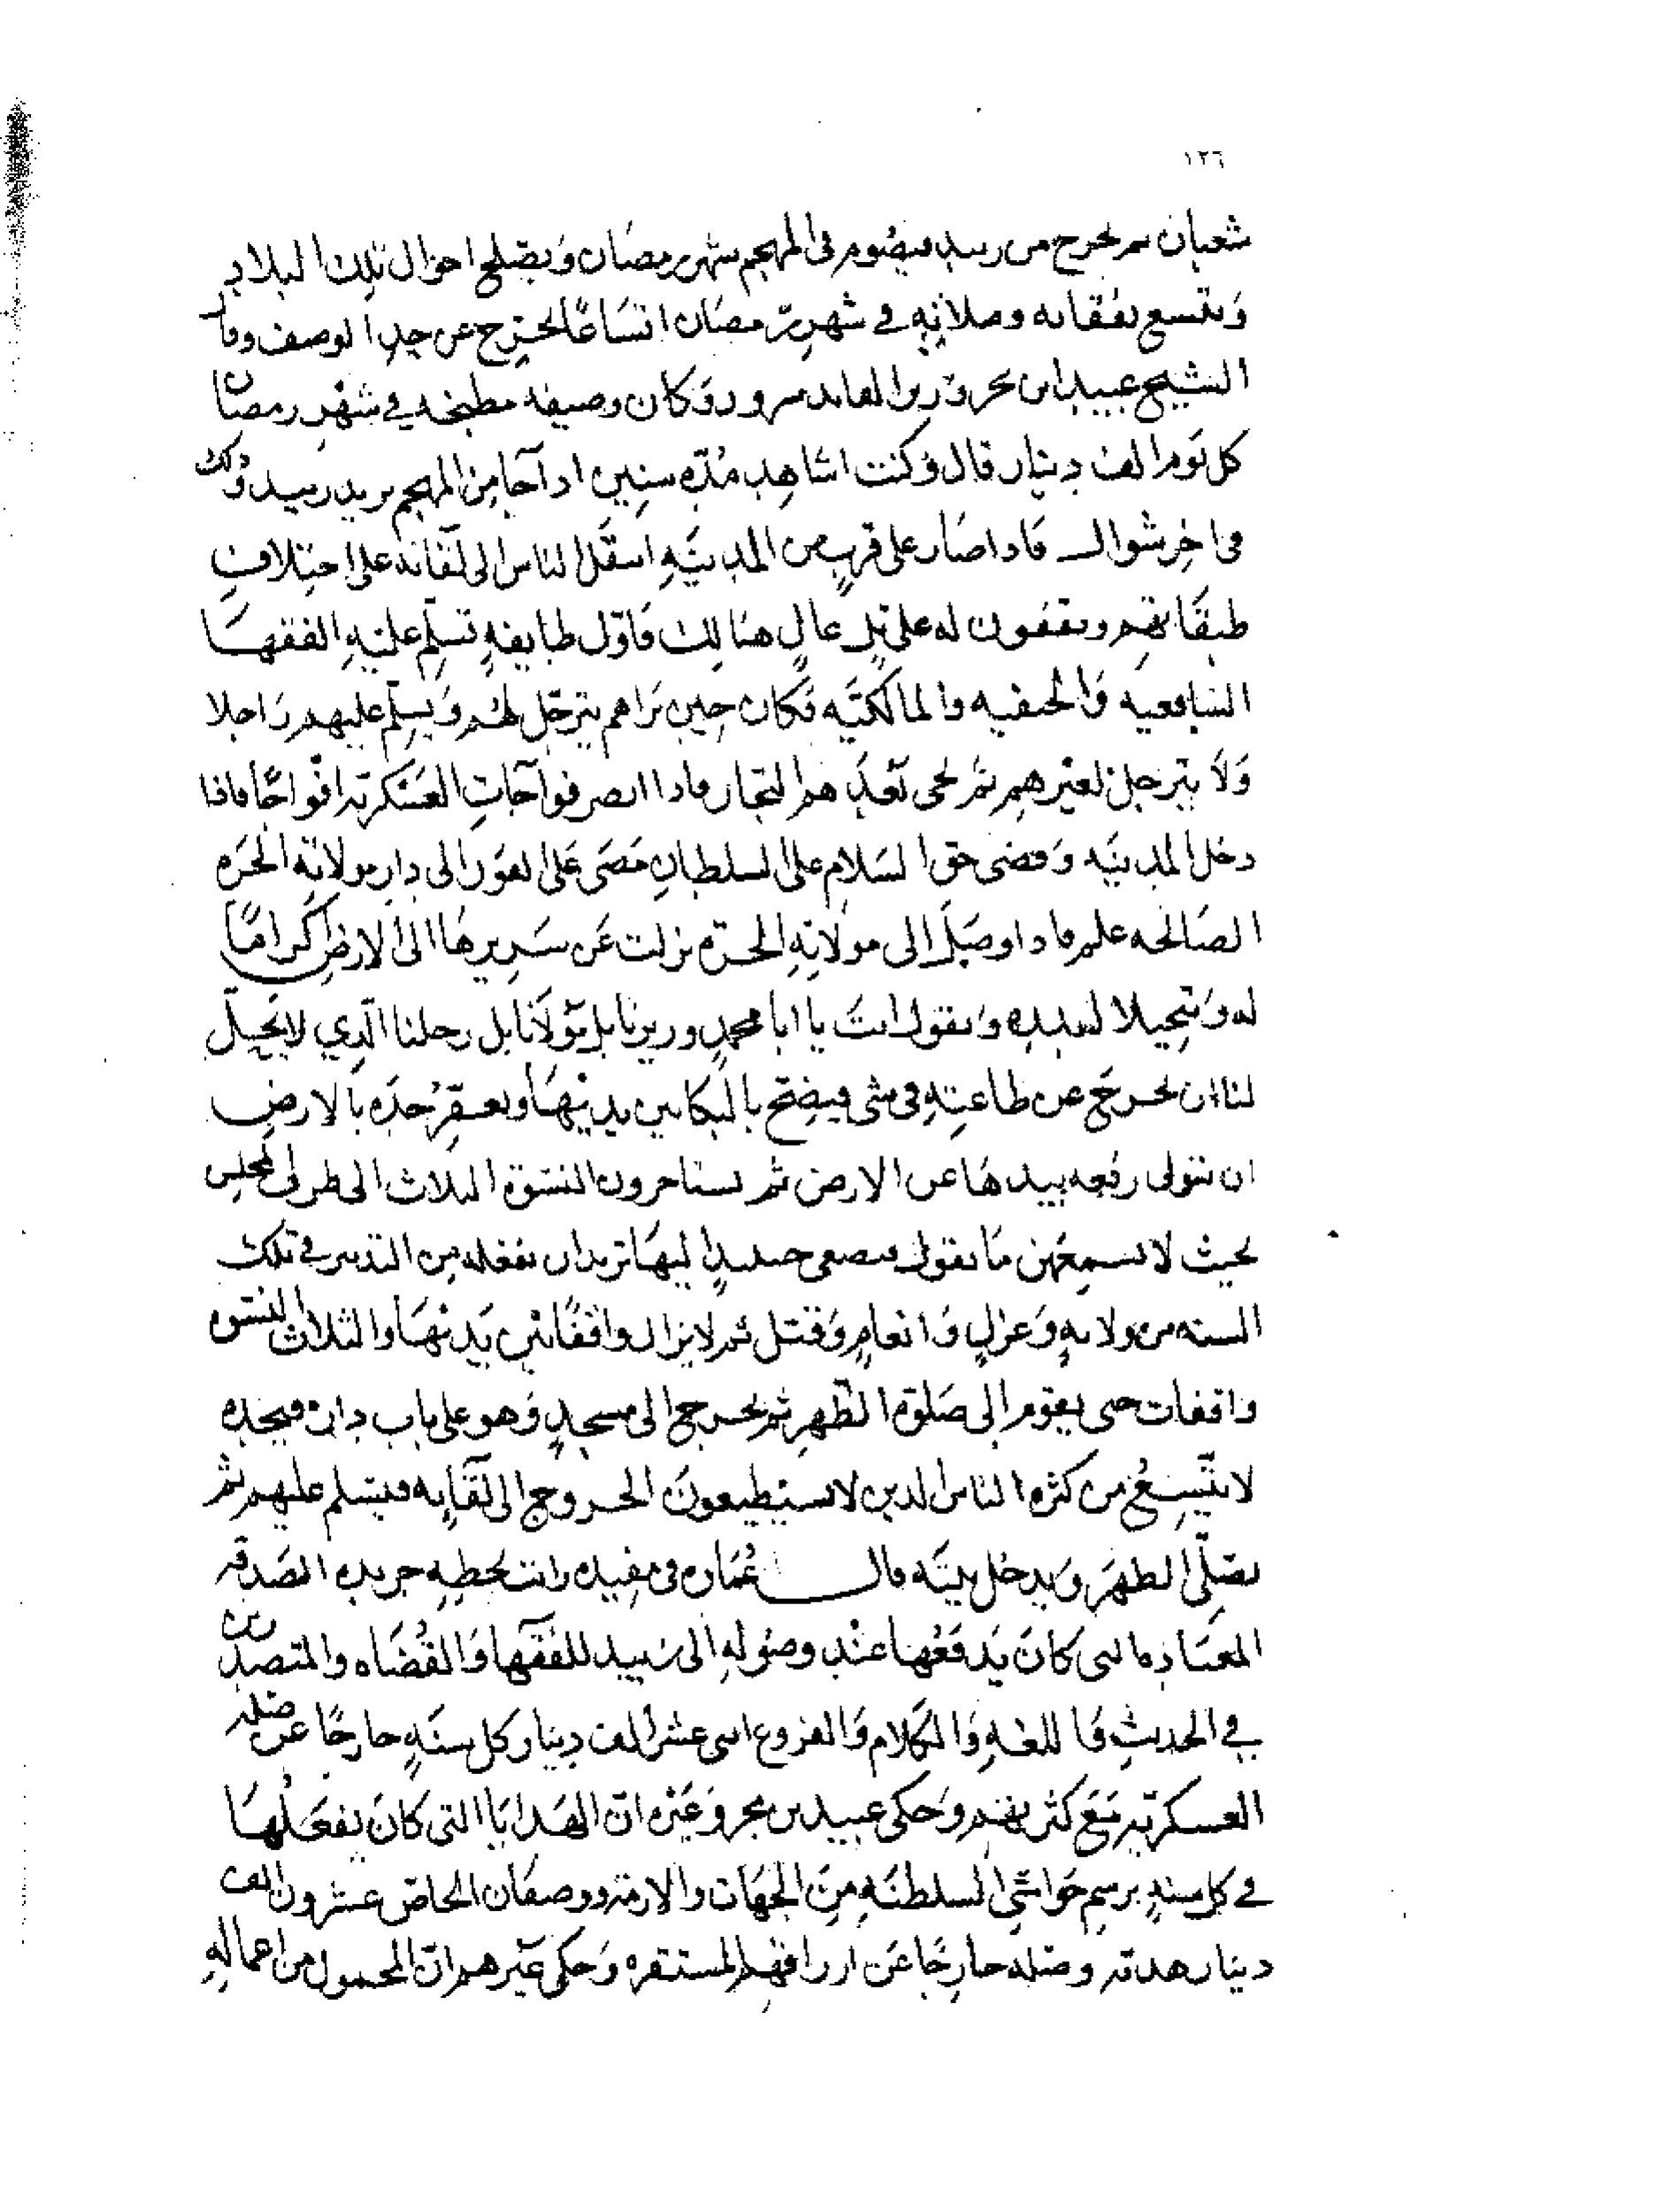 ١٢٦
شعبان ثم يخرج من زبيد فيصوم في المهجم شهر رمضان ويصلح احوال تلك البلاد
وتتسع نفقاته وصلاته في شهر رمضان اتساعًا يخرج عن حد الوصف وقال
الشيخ عبيد ابن بحر وزير القايد سرور وكان وصيفه مطبخه في شهر رمضان
كل يوم الف دينار قال وكنت اشاهد مدّة سنين اذا جا من المهجم يريد زبيد وذلك
في اخر شوال فاذا صار على قرب من المدينة استقل الناس الى لقائه على اختلاف
طبقاتهم ويقفون له على تل عال هنالك فاول طايفةٍ تسلّم عليه الفقها
الشافعيه والحنفيه والمالكيّه فكان حين يراهم يترجّل لهم ويسلّم عليهم راجلا
ولا يترجل لغيرهم ثم يجى بعدهم التجار فاذا انصرفوا جات العسكريّه افواجًا فاذا
دخل المدينه وقضى حق السلام على السلطان مضى على الفور الى دار مولاته الحرّه
الصالحه علم فاذا وصل الى مولاته الحرّه نزلت عن سريرها الى الارض اكرامًا
له وتبجيلا لسيده وتقول انت يا ابا محمد وزيرنا بل مولانا بل رجلنا الّذي لا يحلّ
لنا ان نخرج عن طاعته في شي فيضج بالبكا بين يديها ويعفّر خدّه بالارض
ان تتولى رفعه بيدها عن الارض ثم يستاخرون النسوة الثلاث الى طرف المجلس
بحيث لا يسمعهن ما يقول فيصغى حينيد اليها تريد ان يفعله من التدبير في تلك
السنه من ولايةٍ وعزلٍ وانعام وقتل ثم لا يزال واقفًا بين يديها والثلاث النسوة
واقفات حتى يقوم الى صلوة الظّهر ثم يخرج الى مسجده وهو على باب داره فيجده
لا يتّسع من كثرة الناس الذين لا يستطيعون الخروج الى لقايه فيسلم عليهم ثم
يصلّى الظهر ويدخل بيته قال عُماره في مفيده رايت بخطه جريده الصدقه
المعتاده التى كان يدفعها عند وصوله الى زبيد للفقها والقضاه والمتصدرين
في الحديث واللغه والكلام والفروع اثنى عشر الف دينار كل سنةٍ خارجًا عن صله
العسكريّه مع كثرتهم وحكى عبيد بن بحر وغيره انّ الهدايا التى كان يفعلها
في كل سنةٍ برسم حواشي السلطنه من الجهات والازمّه ووصفان الخاص عشرون الف
دينار هديّه وصله خارجًا عن ارزاقهم المستقره وحكى غيرهم انّ المحمول من اعماله